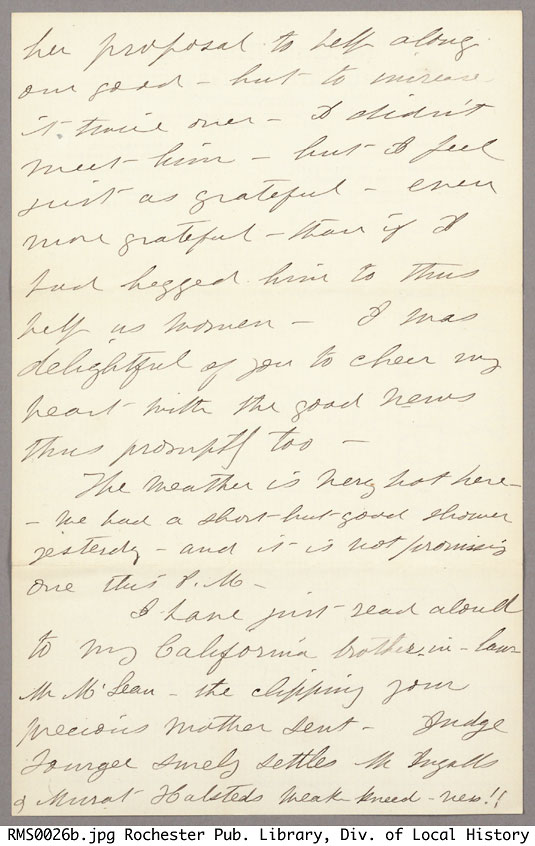 her proposal to help along
our good - but to increase
it twice over - I didn't
meet him - but I feel
just as grateful - even
more grateful - than if I
had begged him to thus
help us women - I was
delightful of you to cheer my
heart with the good news
thus promptly too -
The weather is very hot here -
- we had a short but good shower
yesterdy - and it is not promising
one this P.M. -
I have just read aloud
to my California brother-in-law
Mr McLean - the clipping your
precious mother sent - Judge
Tourgee surely settles Mr Ingalls
& Murat Halsteds weak kneed -ness!!
RMS0026b.jpg Rochester Pub. Library, Div. of Local History